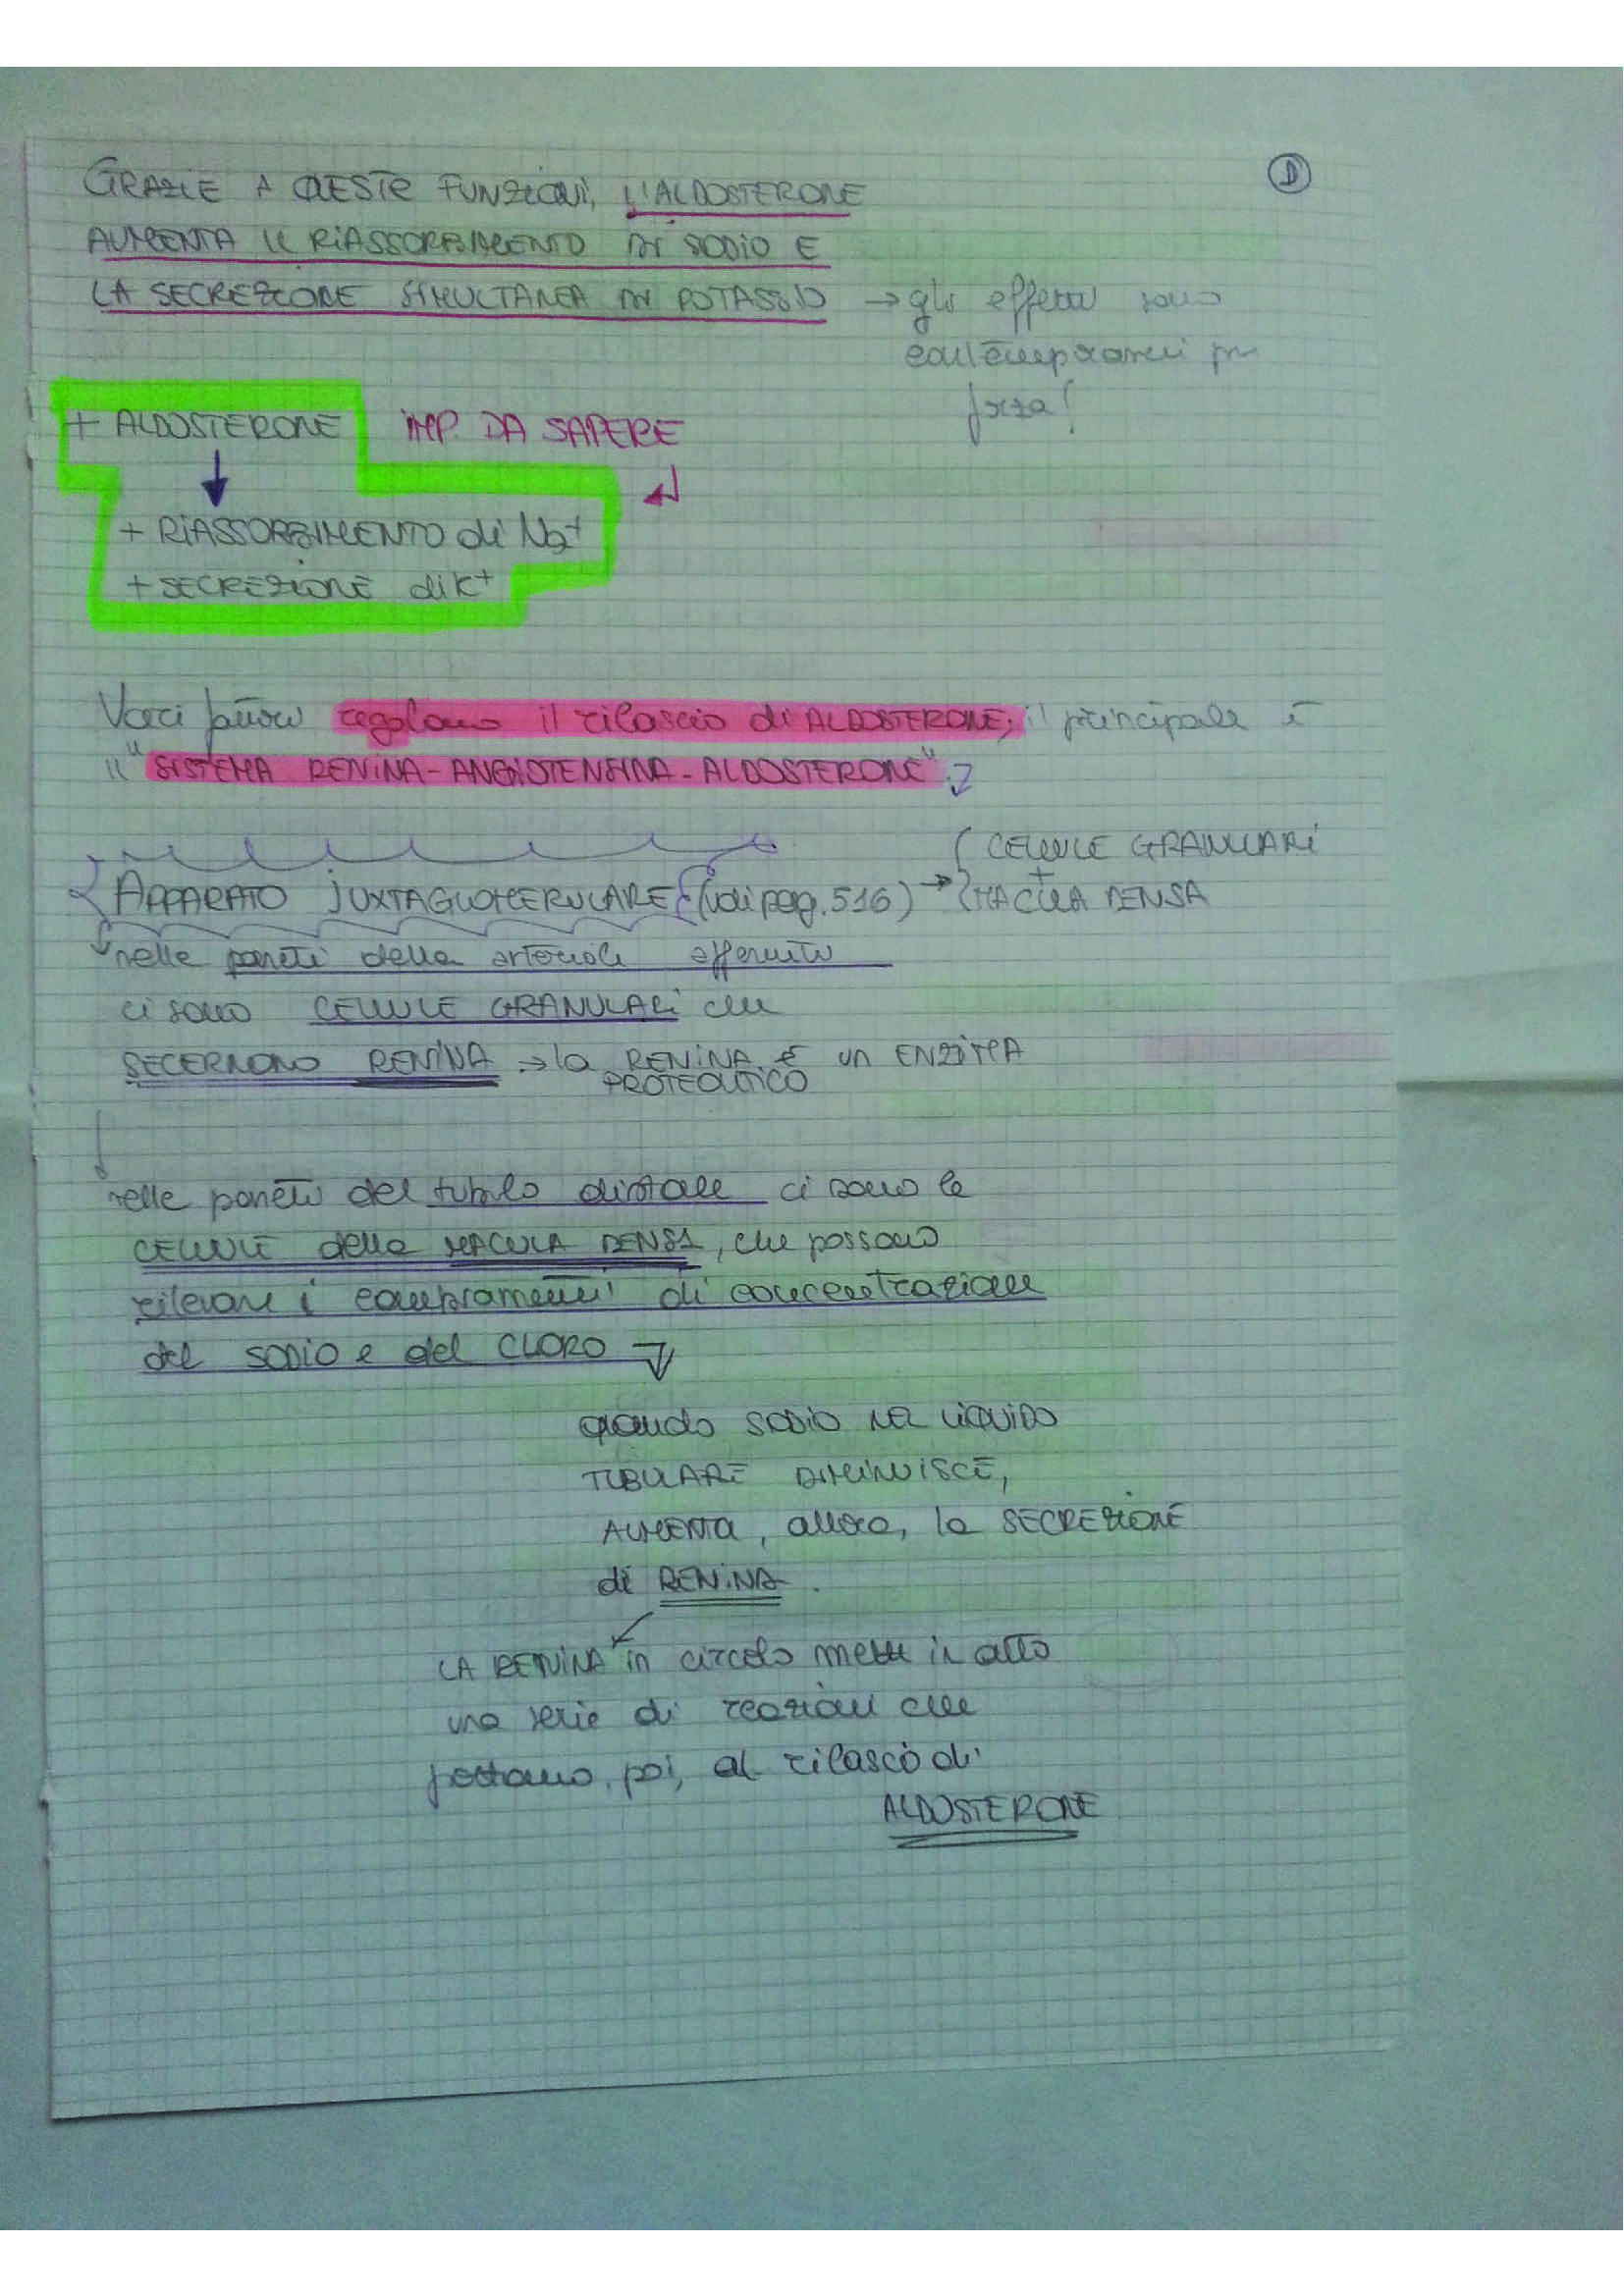 D
GRAZIE A QUESTE FUNZIONI, L'ALDOSTERONE
AUMENTA IL RIASSORBIMENTO DI SODIO E
LA SECREZIONE SIMULTANEA DI POTASSIO → gli effetti sono
contemporanei per
forza!
+ ALDOSTERONE IMP. DA SAPERE
+ RIASSORBIMENTO di Na+
+ SECREZIONE di K+
Vari fattori regolano il rilascio di ALDOSTERONE; il principale è
il "SISTEMA RENINA-ANGIOTENSINA-ALDOSTERONE".
CELLULE GRANULARI
+
APPARATO JUXTAGLOMERULARE (vedi pag. 516) → MACULA DENSA
nelle pareti della arteriole afferenti
ci sono CELLULE GRANULARI che
SECERNONO RENINA → la RENINA È UN ENZIMA
PROTEOLITICO
nelle pareti del tubulo distale ci sono le
CELLULE della MACULA DENSA, che possono
rilevare i cambiamenti di concentrazione
del SODIO e del CLORO
quando SODIO NEL LIQUIDO
TUBULARE DIMINUISCE,
AUMENTA, allora, la SECREZIONE
di RENINA.
LA RENINA in circolo mette in atto
una serie di reazioni che
portano, poi, al rilascio di
ALDOSTERONE